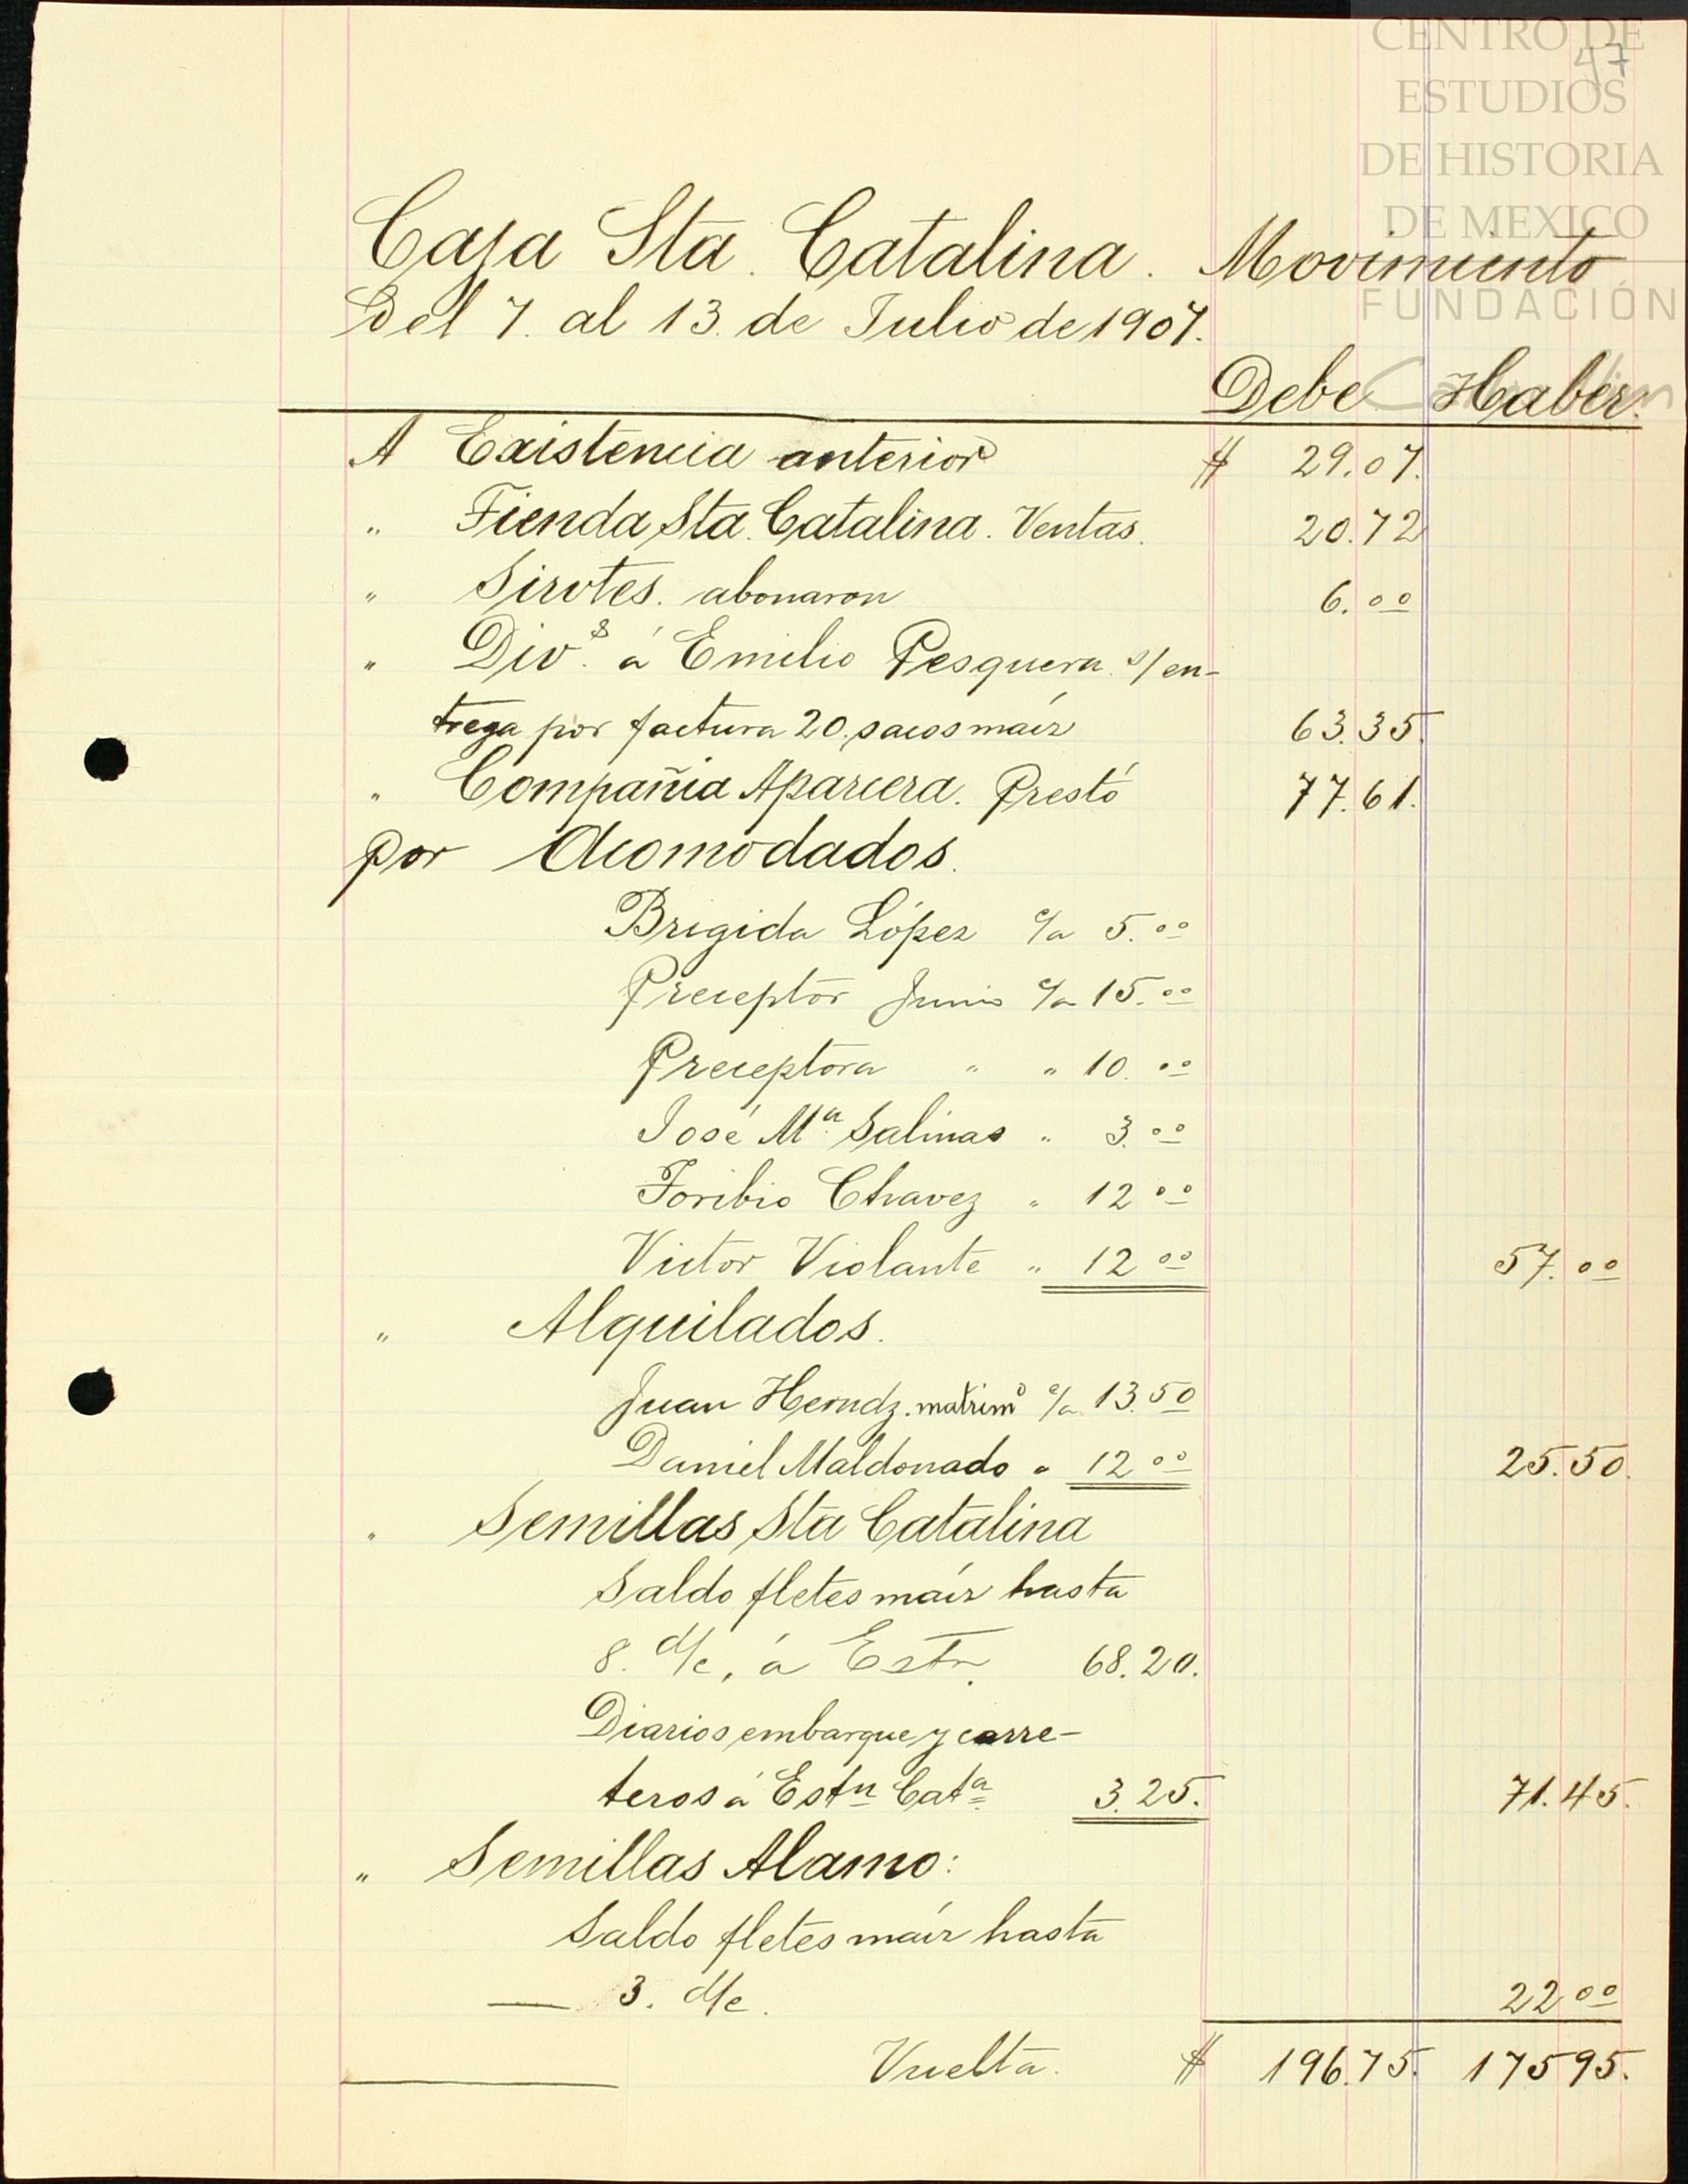 CENTRO DE
47
ESTUDIOS
DE HISTORIA
DE MEXICO
FUNDACIÓN
Caja Sta. Catalina. Movimiento
Del 7. al 13. de Julio de 1907.
Debe Haber.
A Existencia anterior $ 29.07.
" Tienda Sta. Catalina. Ventas. 20.72
" Sirotes. abonaron 6.00
" Div.s á Emilio Pesquera. s/ en-
trega por factura 20. sacos maíz 63.35.
" Compañia Aparcera. Prestó 77.61.
por Acomodados.
Brigida López c/a 5.00
Preceptor Junio c/a 15.00
Preceptora " " 10.00
José Ma. Salinas " 3.00
Toribio Chavez " 12 00
Victor Violante " 12 00 57.00
" Alquilados.
Juan Herndz. matrimo c/a 13.50
Daniel Maldonado " 12 00 25.50.
" Semillas Sta Catalina
Saldo fletes maíz hasta
8. d/c, á Estn. 68.20.
Diarios embarque y carre-
teros á Estn Cata 3.25. 71.45.
" Semillas Alamo:
Saldo fletes maíz hasta
— 3. d/c. 22 00
Vuelta. $ 196.75. 175 95.